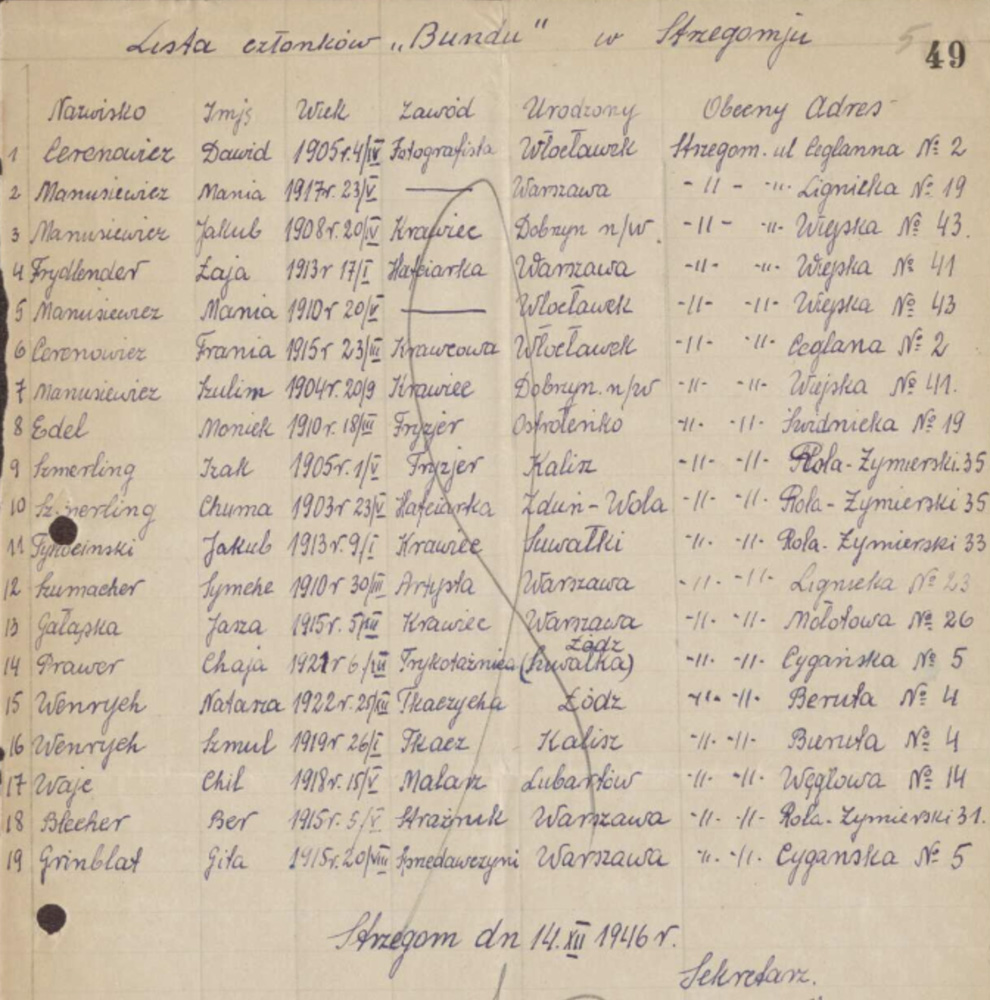 Lista członków „Bundu“ w Strzegomju
5 49
Nazwisko Imję Wiek Zawód Urodzony Obecny Adres
1 Cerenowicz Dawid 1905r.4/IV Fotografista Włocławek Strzegom. ul Ceglanna № 2
2 Manusiewicz Mania 1917r. 23/V — Warszawa -11- -11- Lignicka № 19
3 Manusiewicz Jakub 1908r. 20/IV Krawiec Dobrzyn n/w. -11- -11- Wiejska № 43.
4 Frydlender Łaja 1913r 17/I Hafciarka Warszawa -11- -11- Wiejska № 41
5 Manusiewicz Mania 1910r 20/V — Włocławek -11- -11- Wiejska № 43
6 Cerenowicz Frania 1915r 23/III Krawcowa Włocławek -11- -11- Ceglana № 2
7 Manusiewicz Szulim 1904r. 20/9 Krawiec Dobrzyn. n/w -11- -11- Wiejska № 41.
8 Edel Moniek 1910r. 18/III Fryzjer Ostrołenko -11- -11- Swidnicka № 19
9 Szmerling Izak 1905r. 1/V Fryzjer Kalisz -11- -11- Rola-Zymierski 35
10 Szmerling Chuma 1903r 23/V Hafciarka Zduń-Wola -11- -11- Rola-Zymierski 35
11 Jakub 1913r. 9/I Krawiec Suwałki -11- -11- Rola-Zymierski 33
12 Szumacher Symche 1910r 30/III Artysta Warszawa -11- -11- Lignicka № 23
13 Gałąska Jasza 1915r. 5/VII Krawiec Warszawa -11- -11- Mołotowa № 26
Łódz
14 Prawer Chaja 1921r 6/VII Trykotażnica (Suwałka) -11- -11- Cygańska № 5
15 Wenrych Natasza 1922r. 25/XII Tkaczycha Łódz -11- -11- Beruta № 4
16 Wenrych Szmul 1919r 26/I Tkacz Kalisz -11- -11- Bieruta № 4
17 Waje Chil 1918r. 15/V Malarz Lubartów -11- -11- Węglowa № 14
18 Blecher Ber 1915r. 5/V Strażnik Warszawa -11- -11- Rola-Zymierski 31.
19 Grinblat Gita 1915r. 20/VIII Sprzedawczyni Warszawa -11- -11- Cygańska № 5
Strzegom dn 14.XII 1946 r.
Sekretarz.